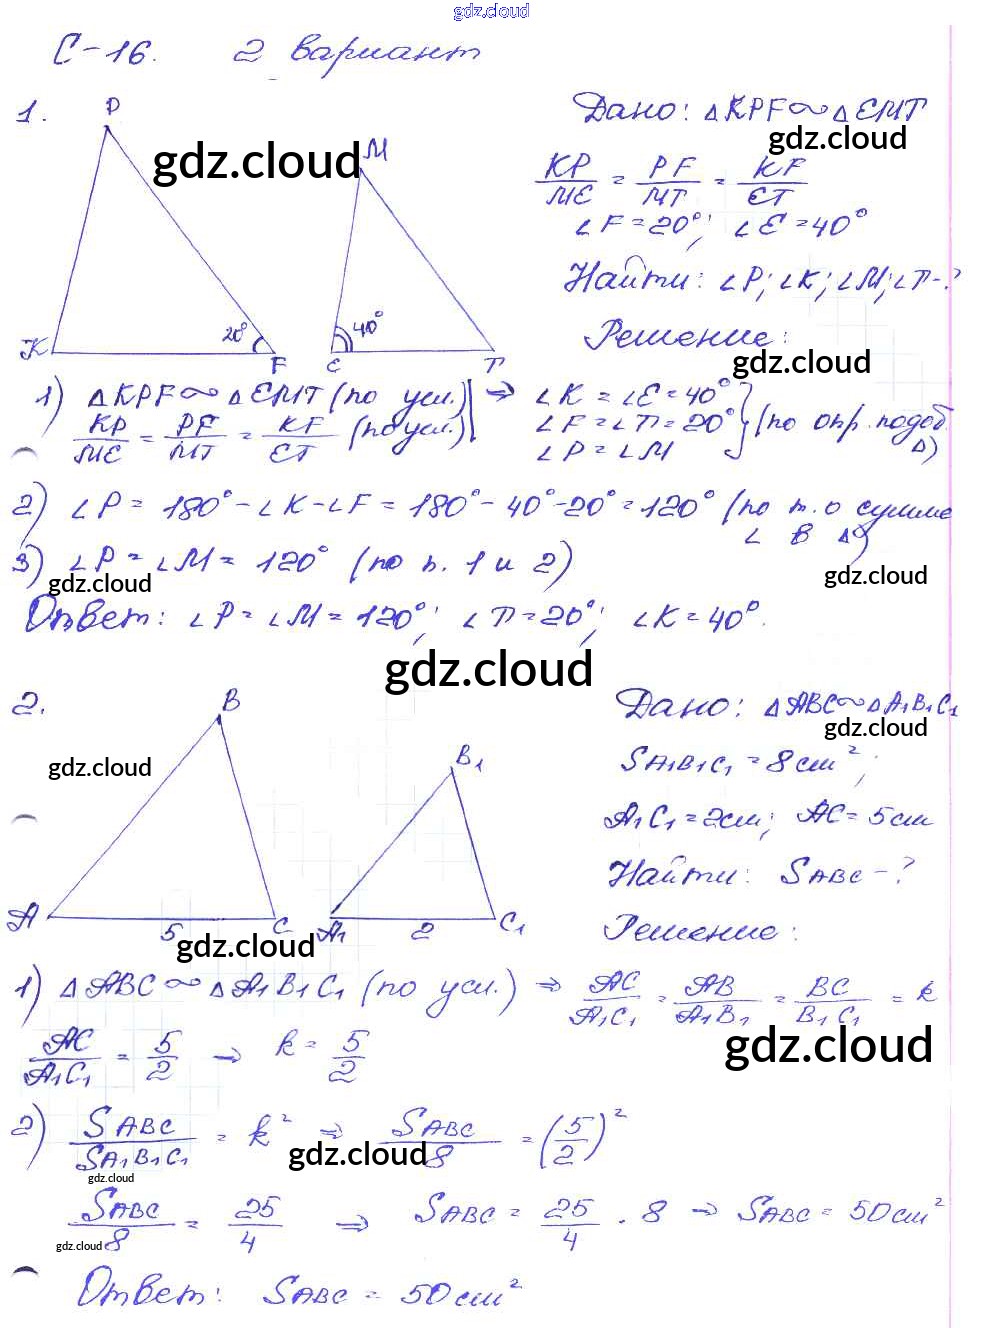 gdz.cloud
С-16. 2 вариант
1.
P
M
K
20°
F
40°
E
T
Дано: △KPF ∾ △EMT
gdz.cloud
gdz.cloud
KP/ME = PF/MT = KF/ET
∠F = 20°; ∠E = 40°
Найти: ∠P; ∠K; ∠M; ∠T-?
Решение:
gdz.cloud
1) △KPF ∾ △EMT (по усл.) ⇒ ∠K = ∠E = 40°
KP/ME = PF/MT = KF/ET (по усл.)
∠F = ∠T = 20° (по опр. подоб. △)
∠P = ∠M
2) ∠P = 180° - ∠K - ∠F = 180° - 40° - 20° = 120° (по т. о сумме
∠ в △)
3) ∠P = ∠M = 120° (по п. 1 и 2)
gdz.cloud
gdz.cloud
Ответ: ∠P = ∠M = 120°; ∠T = 20°; ∠K = 40°.
gdz.cloud
2.
B
A
5
C
B₁
A₁
2
C₁
gdz.cloud
gdz.cloud
Дано: △ABC ∾ △A₁B₁C₁
gdz.cloud
SA₁B₁C₁ = 8 см²;
A₁C₁ = 2см; AC = 5 см
Найти: SABC - ?
Решение:
1) △ABC ∾ △A₁B₁C₁ (по усл.) ⇒ AC/A₁C₁ = AB/A₁B₁ = BC/B₁C₁ = k
gdz.cloud
AC/A₁C₁ = 5/2 ⇒ k = 5/2
2) SABC/SA₁B₁C₁ = k² ⇒ SABC/8 = (5/2)²
gdz.cloud
gdz.cloud
SABC/8 = 25/4 ⇒ SABC = 25/4 · 8 ⇒ SABC = 50 см²
gdz.cloud
Ответ: SABC = 50 см²